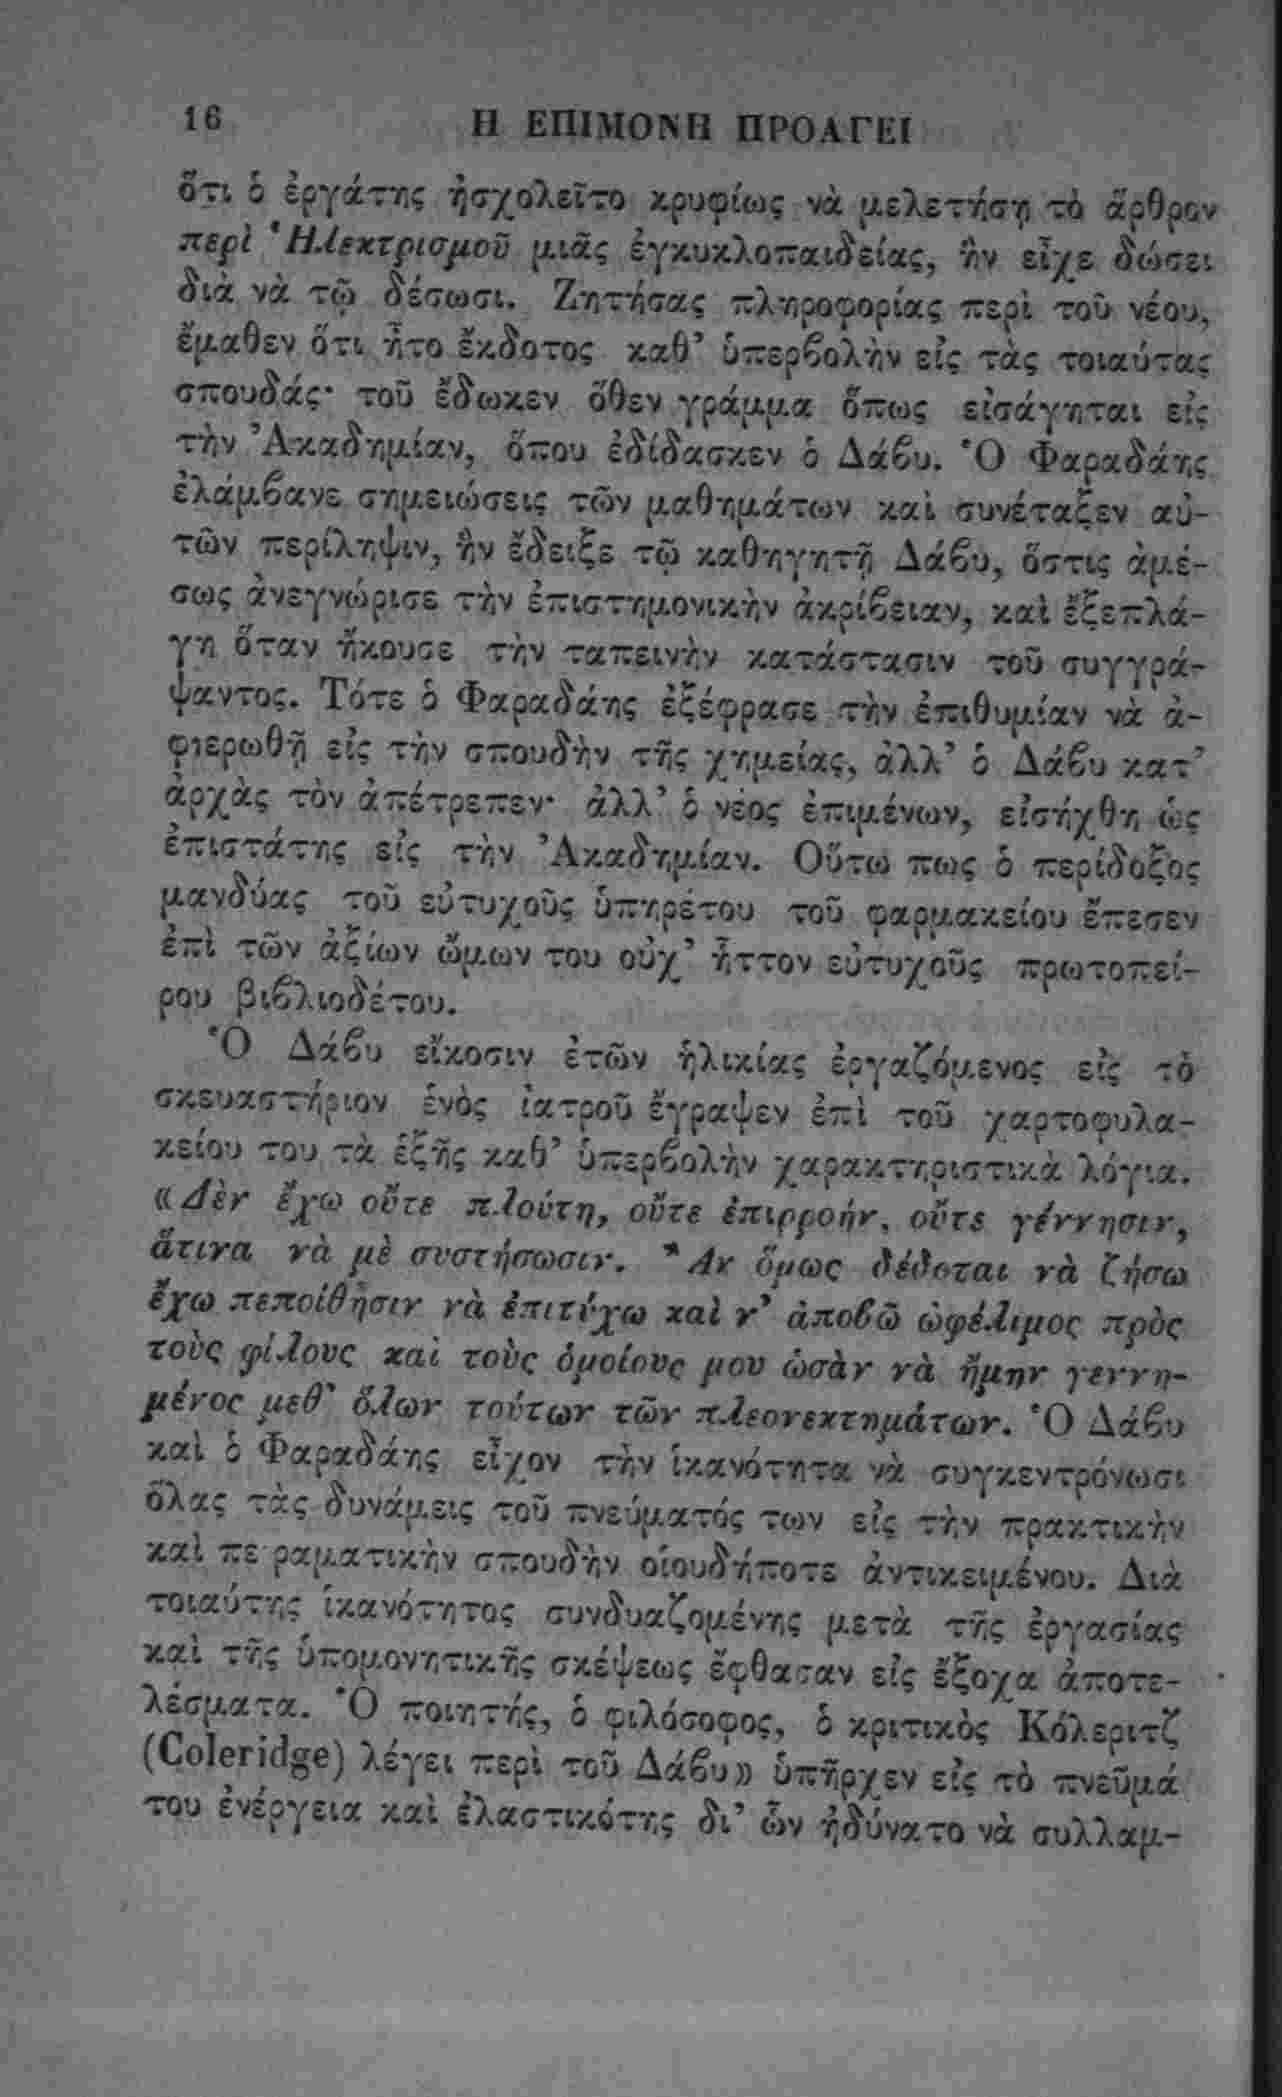 16 Η ΕΠΙΜΟΝΗ ΠΡΟΑΓΕΙ
ὅτι ὁ ἐργάτης ἠσχολεῖτο κρυφίως νὰ μελετήσῃ τὸ ἄρθρον
περὶ Ἡλεκτρισμοῦ μιᾶς ἐγκυκλοπαιδείας, ἣν εἶχε δώσει
διὰ νὰ τῷ δέσωσι. Ζητήσας πληροφορίας περὶ τοῦ νέου,
ἔμαθεν ὅτι ἦτο ἔκδοτος καθ’ ὑπερβολὴν εἰς τὰς τοιαύτας
σπουδάς· τοῦ ἔδωκεν ὅθεν γράμμα ὅπως εἰσάγηται εἰς
τὴν Ἀκαδημίαν, ὅπου ἐδίδασκεν ὁ Δάβυ. Ὁ Φαραδάης
ἐλάμβανε σημειώσεις τῶν μαθημάτων καὶ συνέταξεν αὐ-
τῶν περίληψιν, ἣν ἔδειξε τῷ καθηγητῇ Δάβυ, ὅστις ἀμέ-
σως ἀνεγνώρισε τὴν ἐπιστημονικὴν ἀκρίβειαν, καὶ ἐξεπλά-
γη ὅταν ἤκουσε τὴν ταπεινὴν κατάστασιν τοῦ συγγρά-
ψαντος. Τότε ὁ Φαραδάης ἐξέφρασε τὴν ἐπιθυμίαν νὰ ἀ-
φιερωθῇ εἰς τὴν σπουδὴν τῆς χημείας, ἀλλ’ ὁ Δάβυ κατ’
ἀρχὰς τὸν ἀπέτρεπεν· ἀλλ’ ὁ νέος ἐπιμένων, εἰσήχθη ὡς
ἐπιστάτης εἰς τὴν Ἀκαδημίαν. Οὕτω πως ὁ περίδοξος
μανδύας τοῦ εὐτυχοῦς ὑπηρέτου τοῦ φαρμακείου ἔπεσεν
ἐπὶ τῶν ἀξίων ὤμων του οὐχ’ ἧττον εὐτυχοῦς πρωτοπεί-
ρου βιβλιοδέτου.
Ὁ Δάβυ εἴκοσιν ἐτῶν ἡλικίας ἐργαζόμενος εἰς τὸ
σκευαστήριον ἑνὸς ἰατροῦ ἔγραψεν ἐπὶ τοῦ χαρτοφυλα-
κείου του τὰ ἑξῆς καθ’ ὑπερβολὴν χαρακτηριστικὰ λόγια.
«Δὲν ἔχω οὔτε πλούτη, οὔτε ἐπιρροήν, οὔτε γέννησιν,
ἅτινα νὰ μὲ συστήσωσιν. Ἂν ὅμως δέδοται νὰ ζήσω
ἔχω πεποίθησιν νὰ ἐπιτύχω καὶ ν’ ἀποβῶ ὠφέλιμος πρὸς
τοὺς φίλους καὶ τοὺς ὁμοίους μου ὡσὰν νὰ ἤμην γεννη-
μένος μεθ’ ὅλων τούτων τῶν πλεονεκτημάτων. Ὁ Δάβυ
καὶ ὁ Φαραδάης εἶχον τὴν ἱκανότητα νὰ συγκεντρόνωσι
ὅλας τὰς δυνάμεις τοῦ πνεύματός των εἰς τὴν πρακτικὴν
καὶ πε ραματικὴν σπουδὴν οἱουδήποτε ἀντικειμένου. Διὰ
τοιαύτης ἱκανότητος συνδυαζομένης μετὰ τῆς ἐργασίας
καὶ τῆς ὑπομονητικῆς σκέψεως ἔφθασαν εἰς ἔξοχα ἀποτε-
λέσματα. Ὁ ποιητής, ὁ φιλόσοφος, ὁ κριτικὸς Κόλεριτζ
(Coleridge) λέγει περὶ τοῦ Δάβυ» ὑπῆρχεν εἰς τὸ πνεῦμά
του ἐνέργεια καὶ ἐλαστικότης δι’ ὧν ἠδύνατο νὰ συλλαμ-